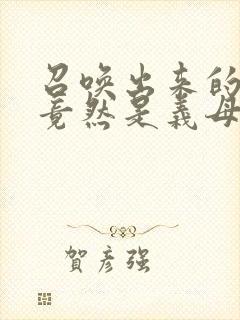 召唤出来的
竟然是义母
贺彦强